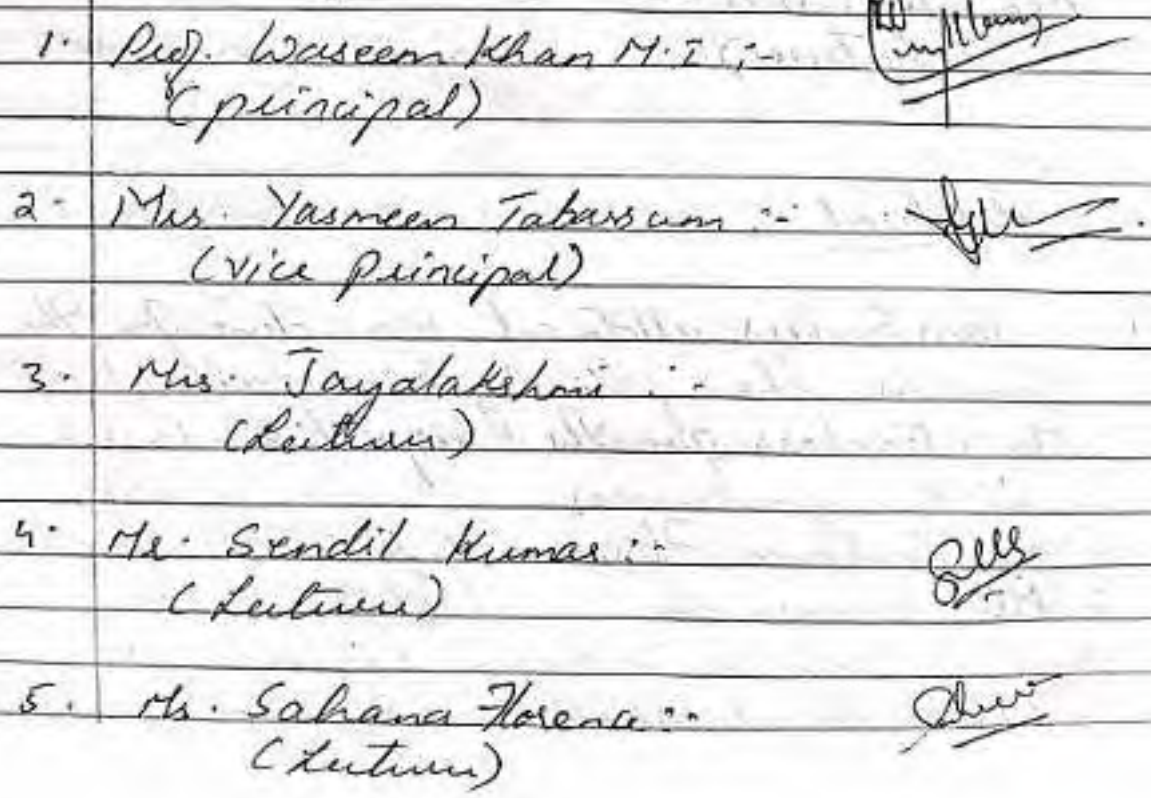 1. Prof. Waseem Khan M.I :-
(principal)
2. Mrs. Yasmeen Tabassum :-
(vice principal)
3. Mrs. Jayalakshmi :-
(Lecturer)
4. Mr. Sendil Kumar :-
(Lecturer)
5. Ms. Sahana Florence :-
(Lecturer)